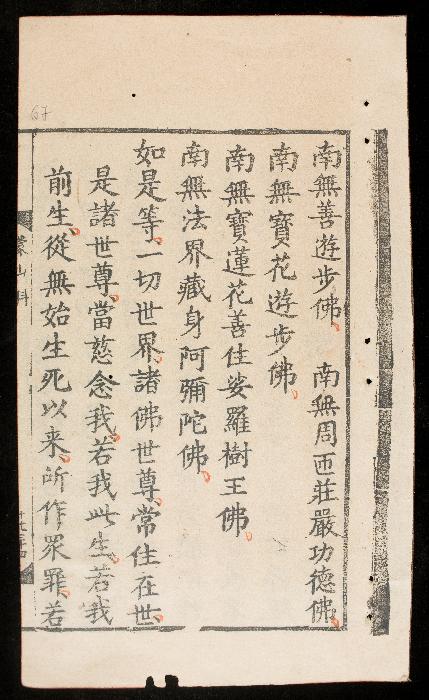 南無善遊步佛、 南無周匝莊嚴功德佛、
南無寶花遊步佛、
南無寶蓮花善住娑羅樹王佛、
南無法界藏身阿彌陀佛、
如是等、一切世界、諸佛世尊、常住在世、
是諸世尊、當慈念我、若我此生、若我
前生、從無始生死以来、所作眾罪、若
蒙山科
67